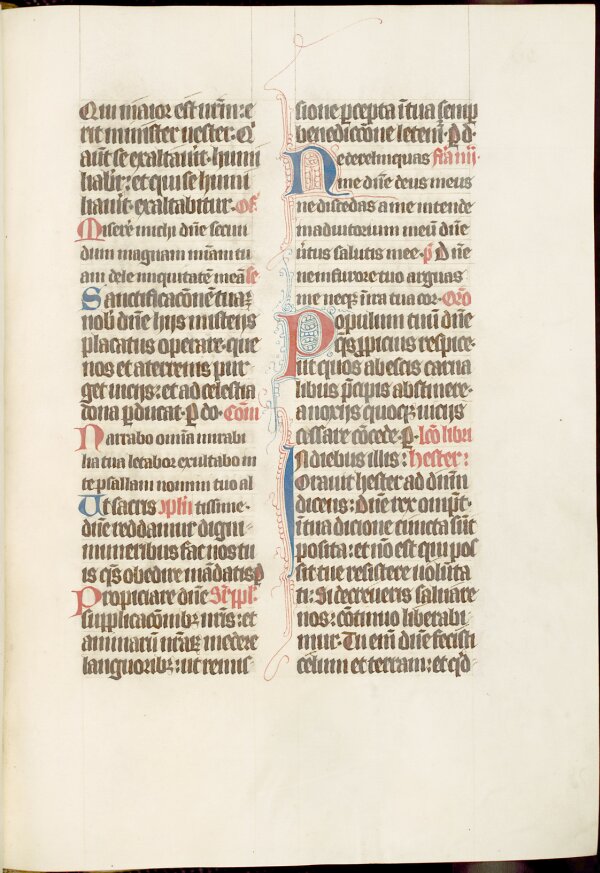 Qui maior est urm: e
rit minister uester. Q̄
aūt se exaltauit. humi
liabit̄: et qui se humi
liauit. exaltabitur. Of̄.
Misere michi dn̄e secun
dum magnam mīam tu
am dele iniquitatē meā Se
Sanctificacōne tuaꝫ
nob̄ dn̄e hijs misterijs
placatus operare. que
nos et a terrenis pur
get uicijs: et ad celestia
dona ꝑducat. P do. Cōm̄
Narrabo om̄ia mirabi
lia tua letabor exultabo in
te psallam nomini tuo al
Ut sacris xp̄lii tissime.
dn̄e reddamur digni
muneribus fac nos tu
is qs̄ obedire mādatis p
Propiciare dn̄e Sr̄ ppl̄.
supplicacōnibꝫ nr̄is: et
animarū nr̄aꝝ medere
languoribꝫ: ut remis
sione ꝑcepta ī tua semp̄
benedicc̄one letem̄. P d.
Ne derelinquas fr̄ia iiij.
me dn̄e deus meus
ne discedas a me intende
in adiutorium meū dn̄e
uirtus salutis mee. p̄ Dn̄e
ne in furore tuo arguas
me neqꝫ ī ira tua cor. Or̄o
Populum tuū dn̄e
qs̄ ꝓpicius respice.
ut quos ab escis carna
libus p̄cipis abstinere.
a noxijs quoqꝫ uicijs
cessare cōcede. P. Lc̄o libri
In diebus illis: hester:
Orauit hester ad dn̄m
dicens: dn̄e rex om̄pt̄.
ī tua dicione cuncta sūt
posita: et nō est qui pos
sit tue resistere uolūta
ti: Si decreueris saluare
nos: cōtinuo liberabi
mur. Tu em̄ dn̄e fecisti
celum et terram: et qd̄